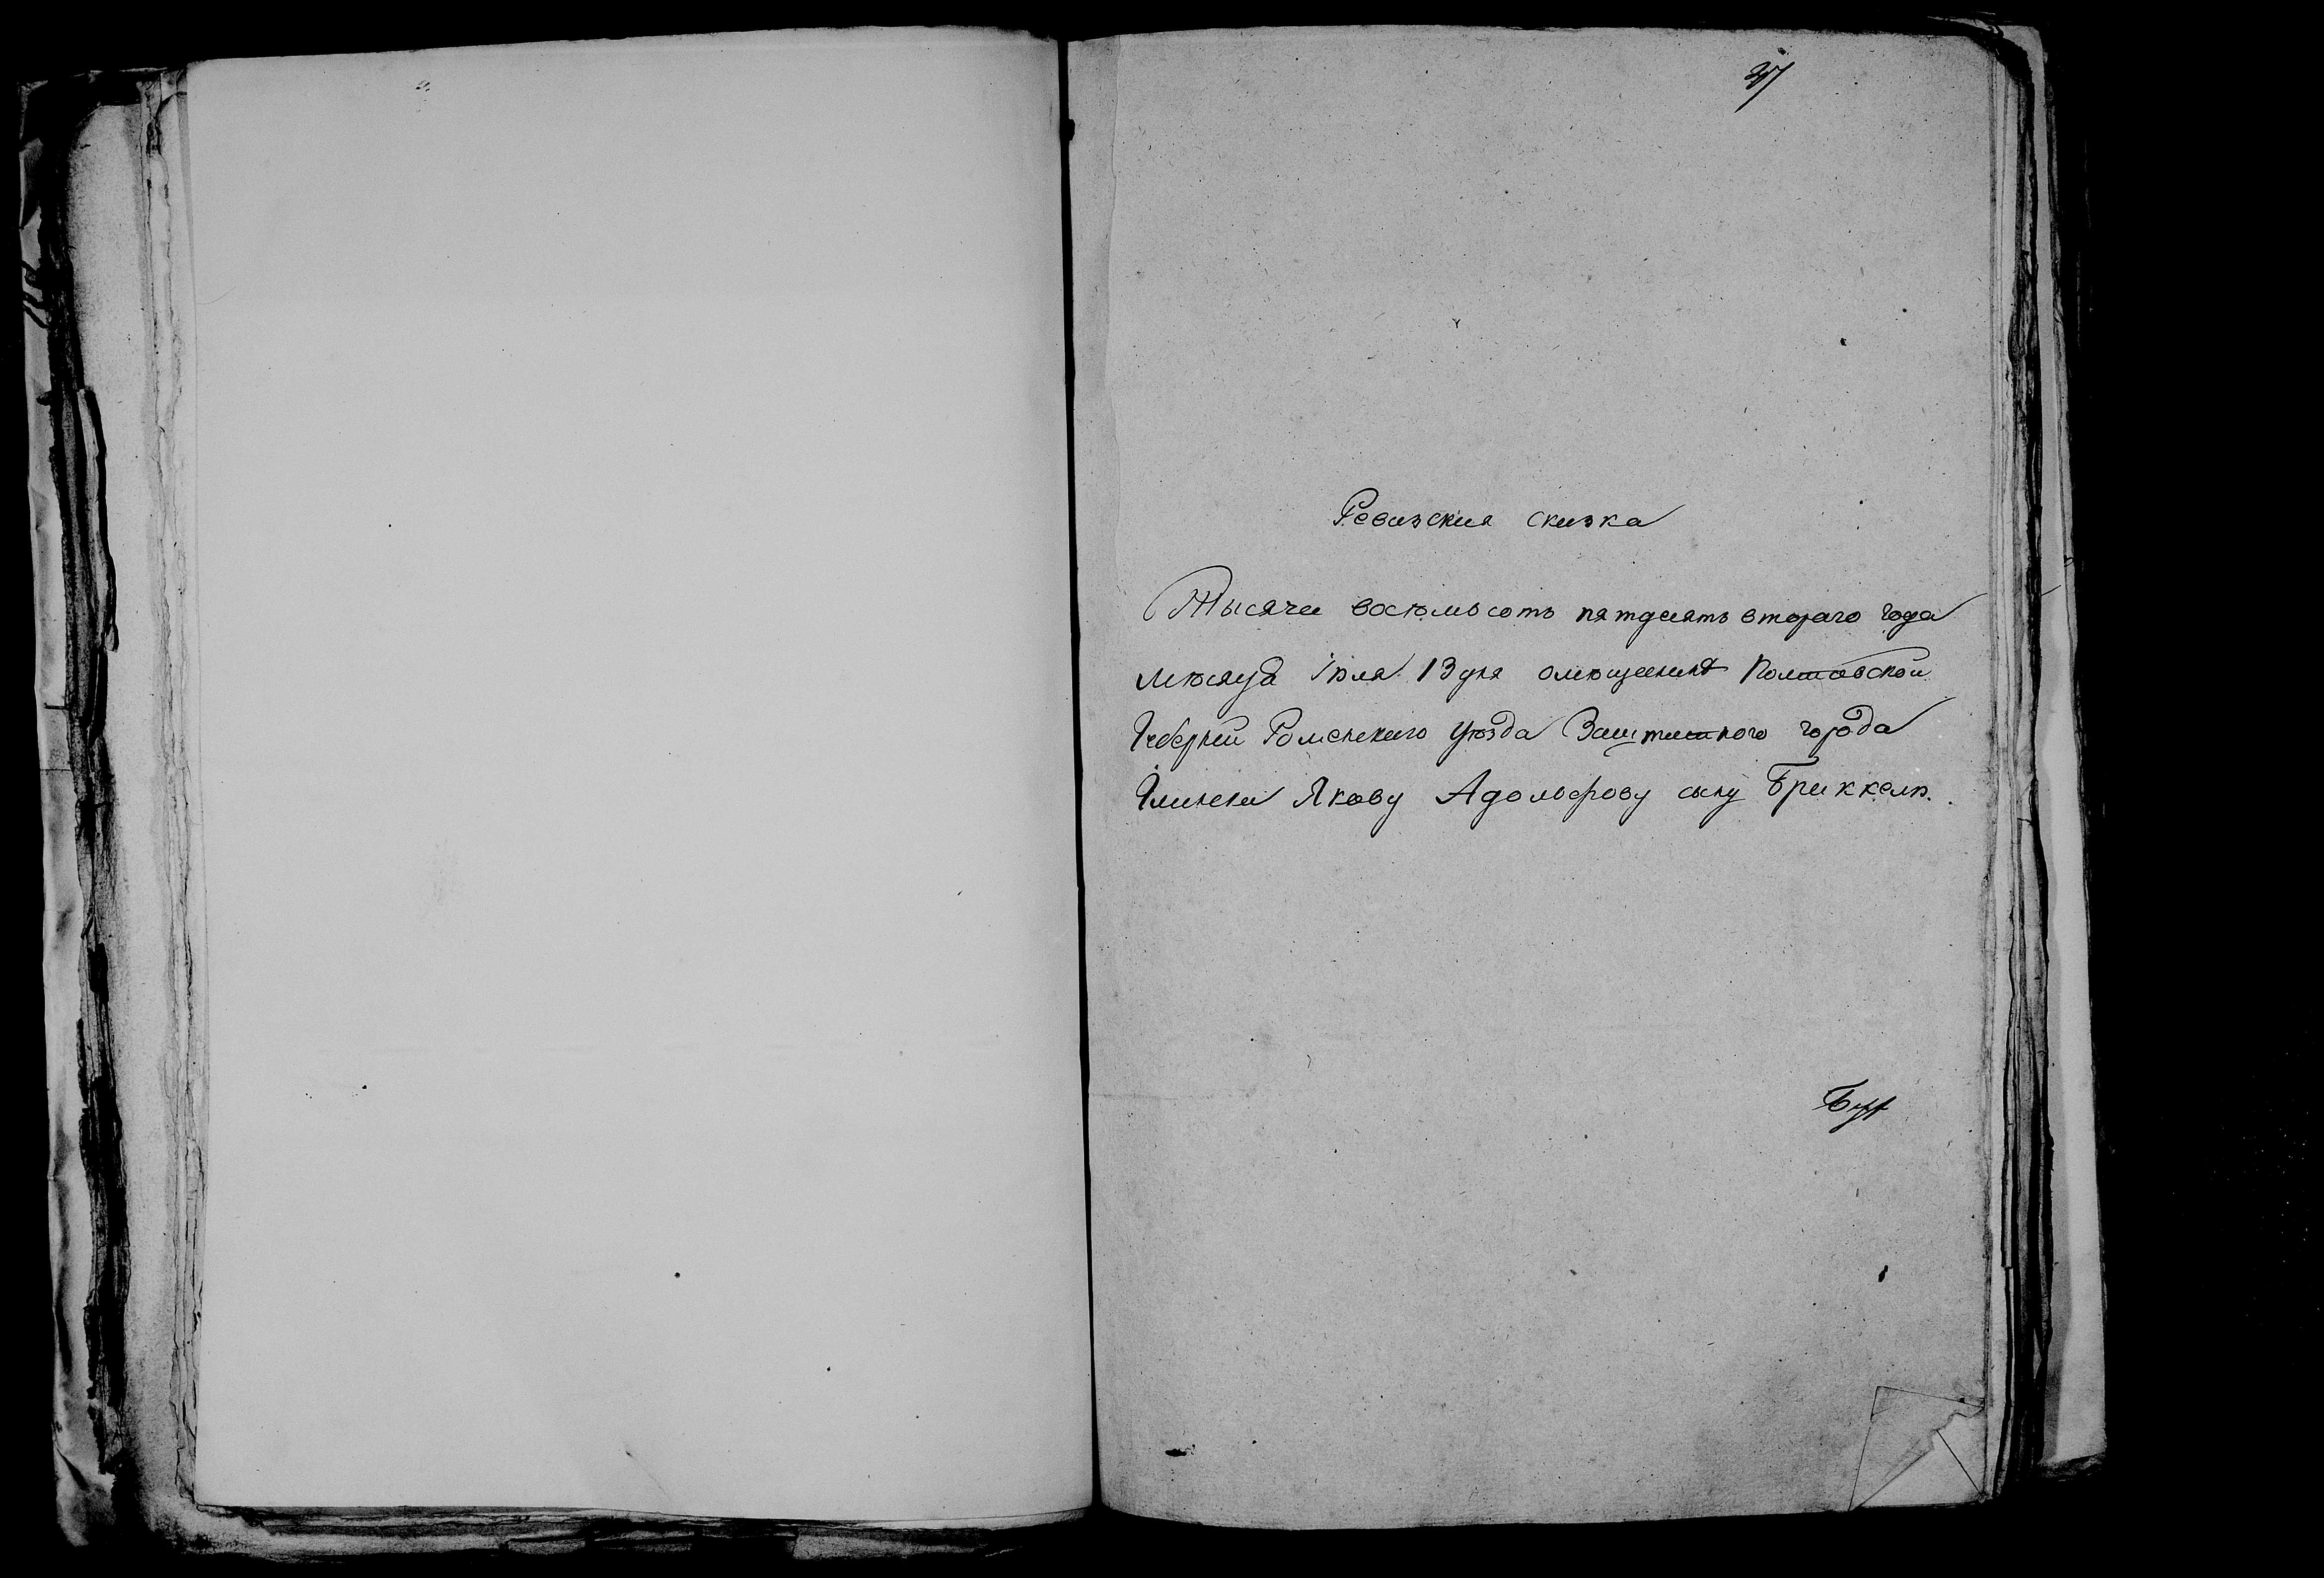 37
Ревизския сказка
Тысяча восюмьсотъ пятдесятъ втораго года
мюсяца Іюля 13 дня Полтовской
Губерніи Роменскаго уюзда Заштатного города
Глинска Якову Адольфову сыну Бриккелъ.